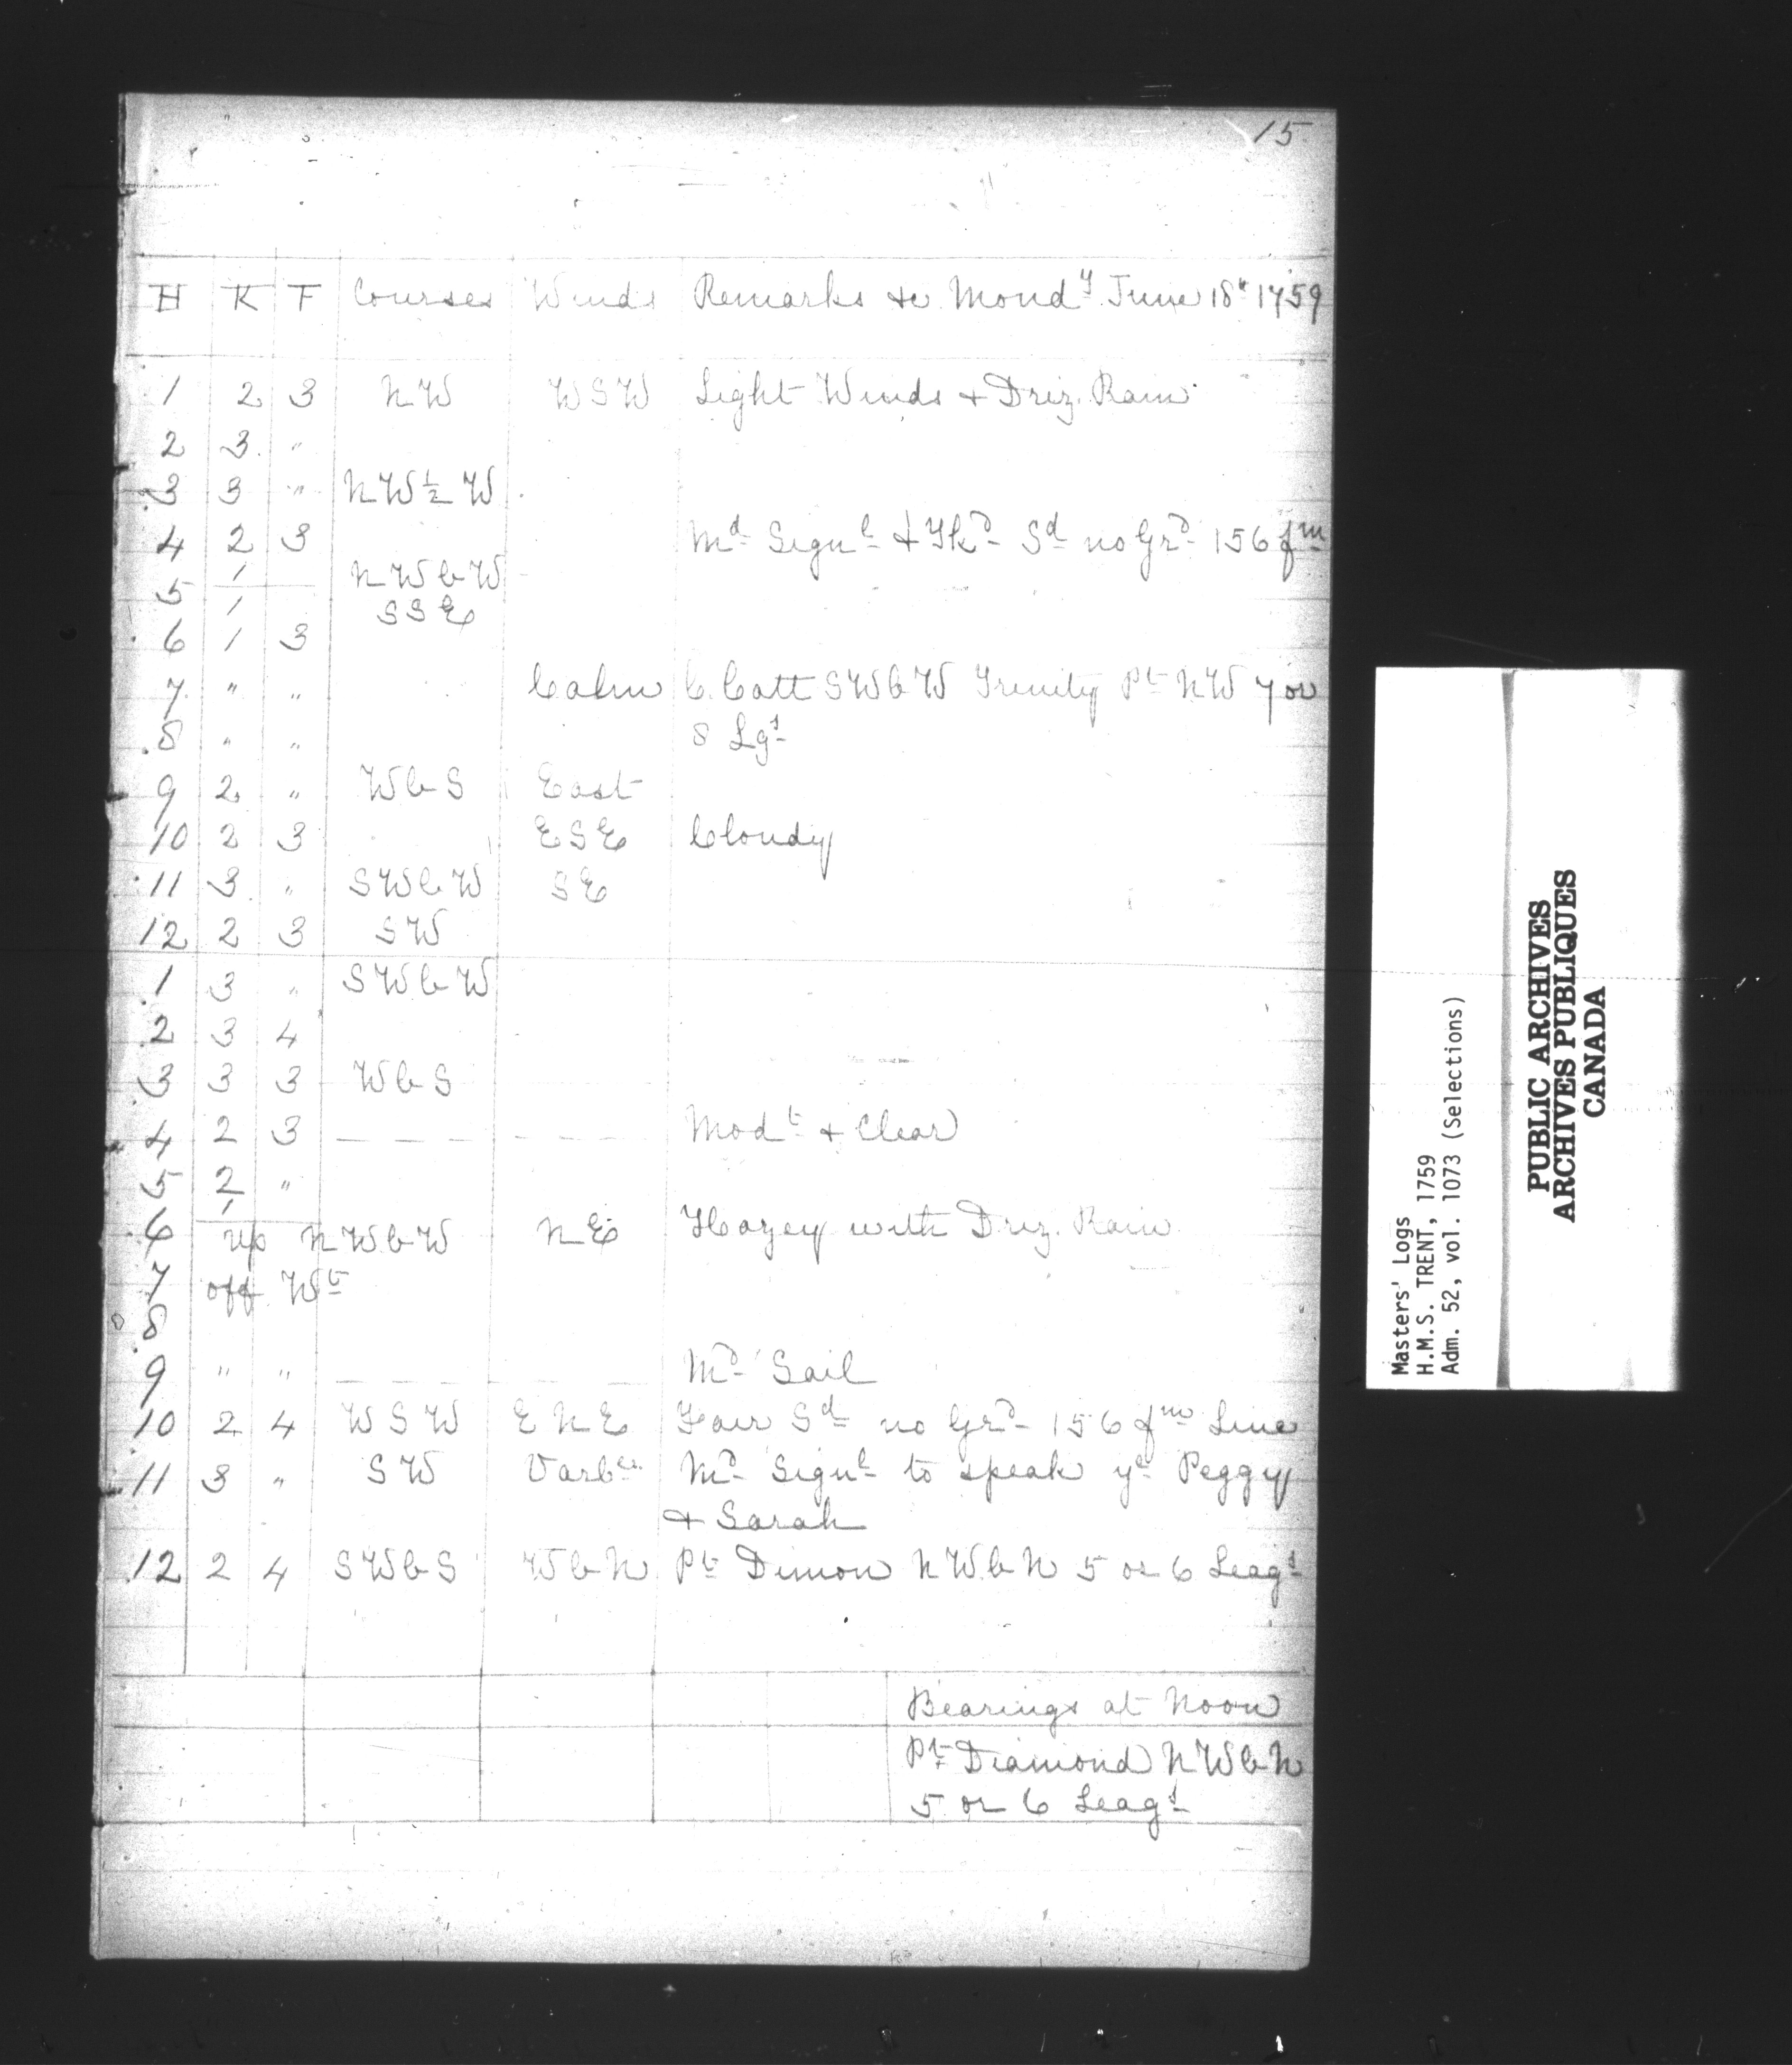 15
H K F Courses Winds Remarks &c Mond^y June 18^th 1759
1 2 3 NW WSW Light Winds & Driz. Rain
2 3 "
3 3 " NW ½ W
4 2 3 M^d Sign^l & Tk^d S^d no Gr^d 156 f^m
1 NWbW
5 1 SSE
6 1 3
7 " " Calm C. Catt SWbW Trinity P^t NW 7 or
8 " " 8 Lg^s
9 2 " WbS East
10 2 3 ESE Cloudy
11 3 " SWbW SE
12 2 3 SW
1 3 " SWbW
2 3 4
3 3 3 WbS
4 2 3 Mod^t & Clear
5 2 "
6 up NWbW NE Hazey with Driz. Rain
7 off W^t
8
9 " " M^d Sail
10 2 4 WSW ENE Fair S^d no Gr^d 156 fm Line
11 3 " SW Varb^le M^d Sign^l to speak y^e Peggy
& Sarah
12 2 4 SWbS WbN P^t Dimon NWbN 5 or 6 Leag^s
Bearings at Noon
P^t Diamond NWbN
5 or 6 Leag^s
Masters' Logs
H.M.S. TRENT, 1759
Adm. 52, vol. 1073 (Selections)
PUBLIC ARCHIVES
ARCHIVES PUBLIQUES
CANADA